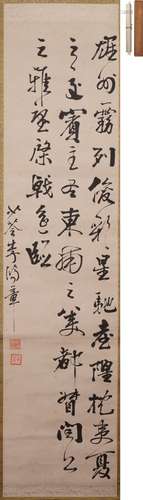 雄州霧列俊彩星馳臺隍枕夷夏
之交賓主盡東南之美都督閻公
之雅望棨戟遙臨
少荃李鴻章